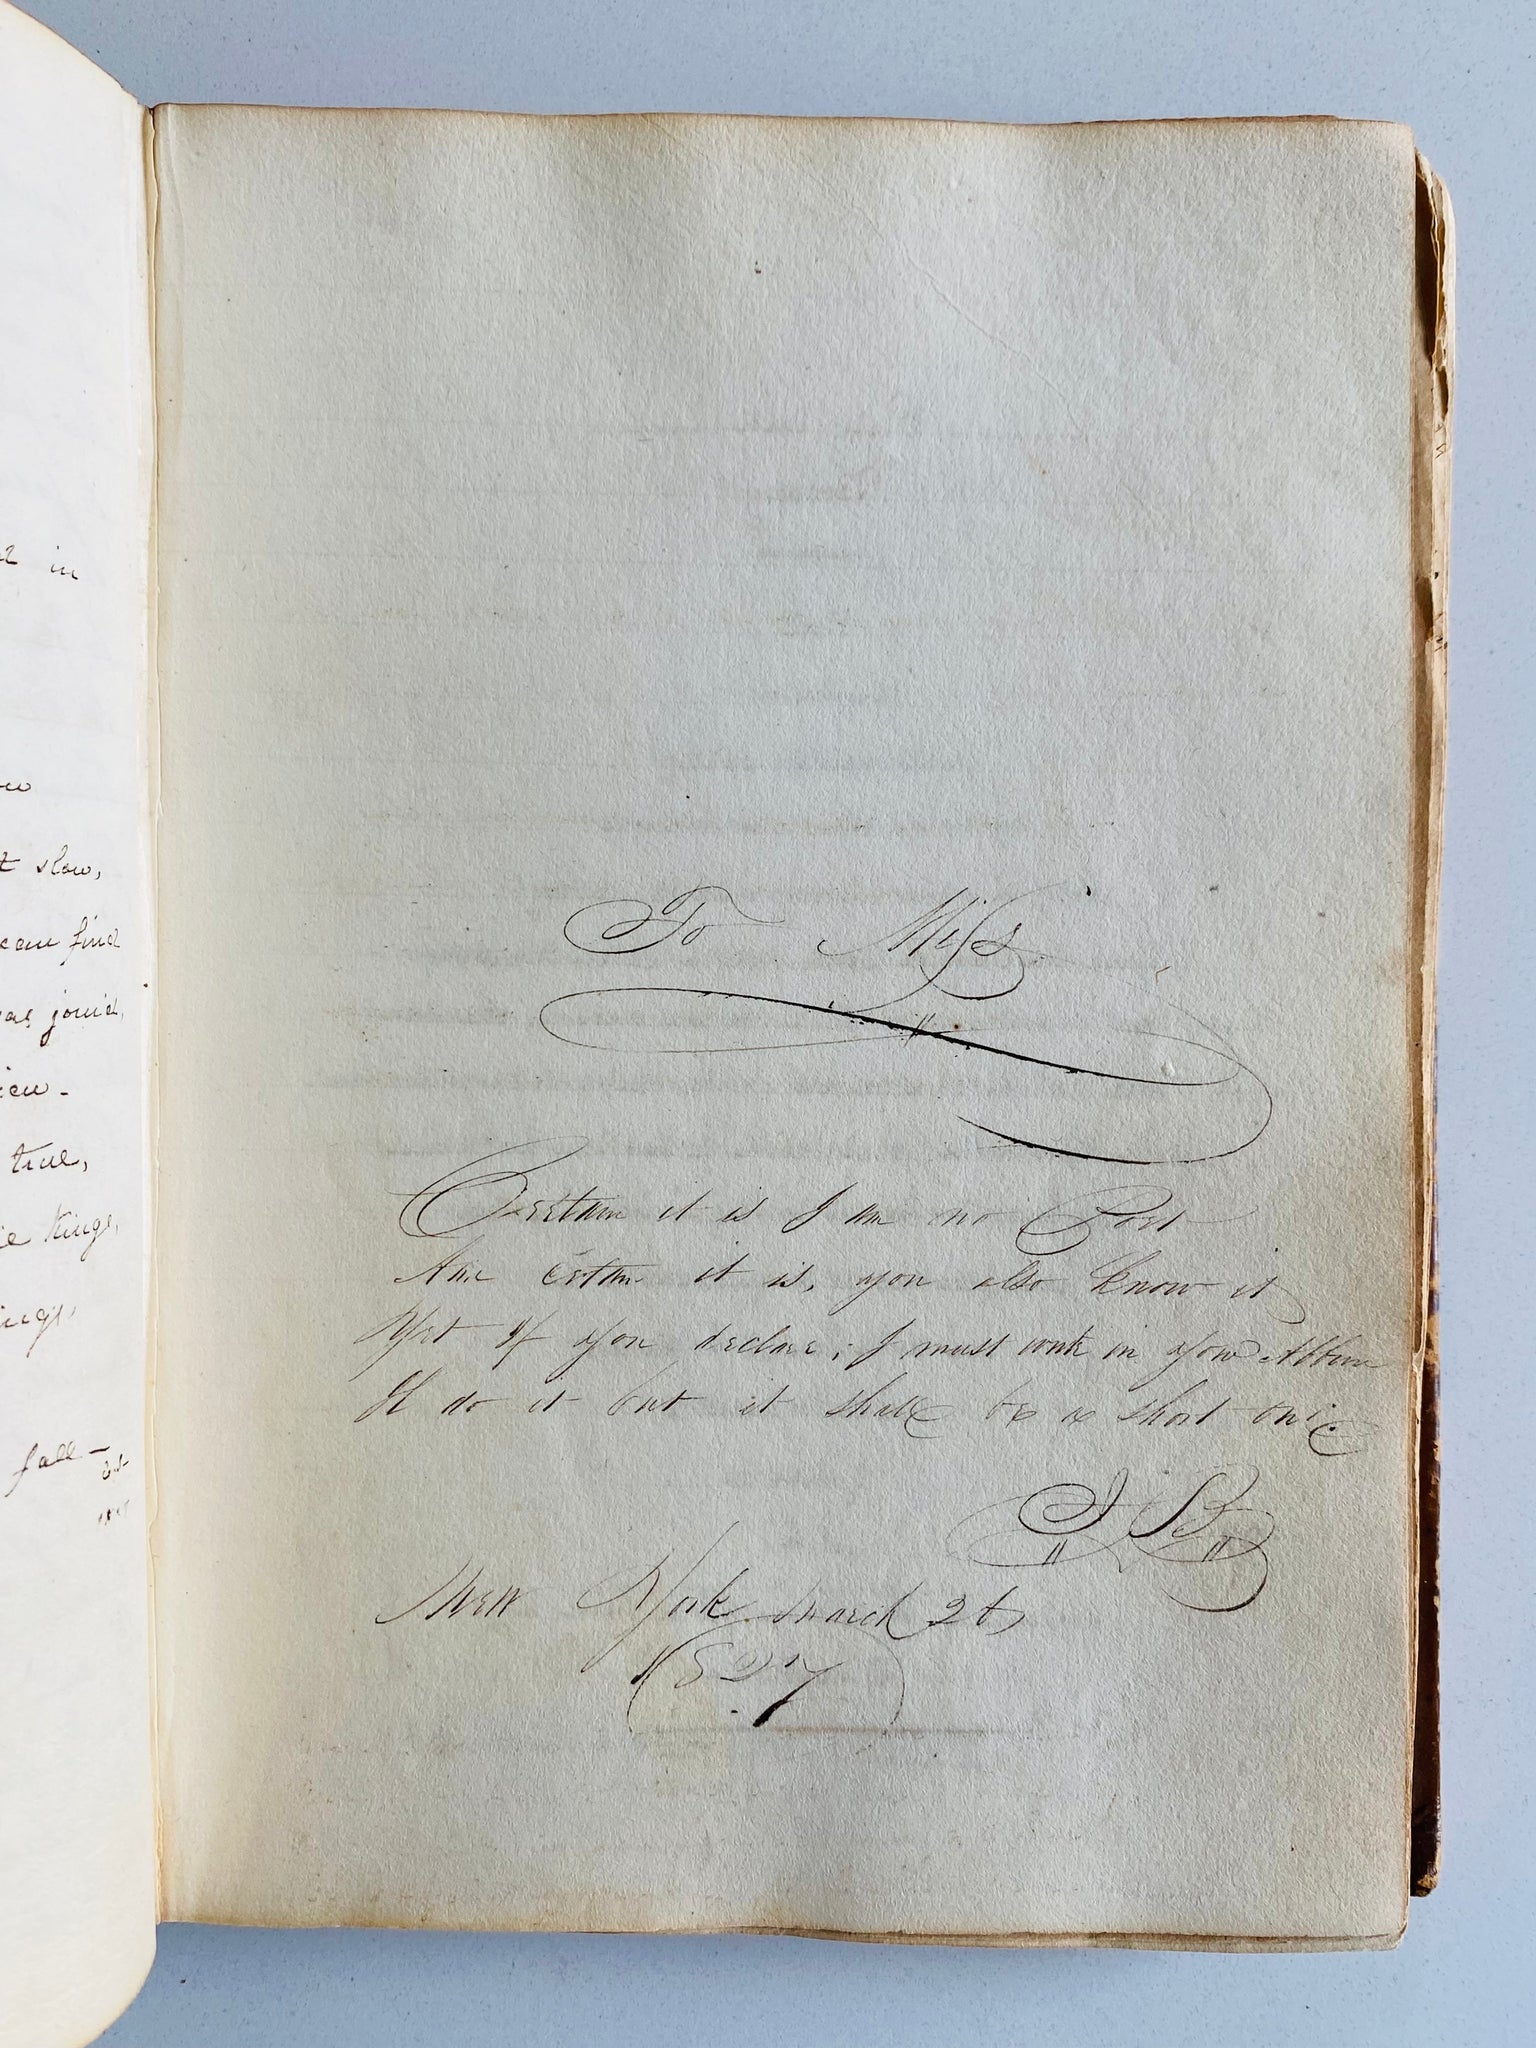 To Miss
Certain it is I am no Poet
And certain it is, you also know it
Yet if you declare, I must write in your Album
Il do it but it shall be a short one
I B
New York March 26
1827
in
slow,
can find
join'd,
true,
Kings,
fall